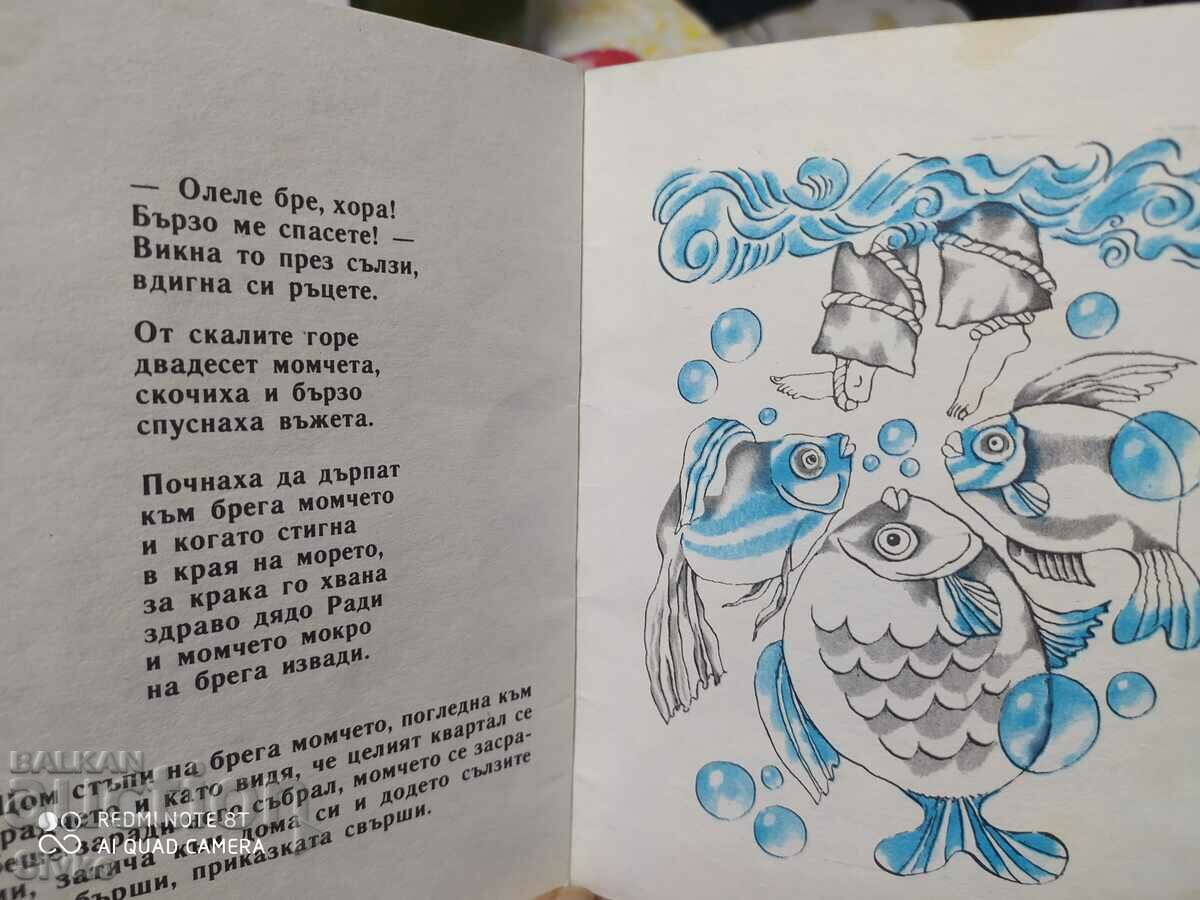 — Олеле бре, хора!
Бързо ме спасете! —
Викна то през сълзи,
вдигна си ръцете.
От скалите горе
двадесет момчета,
скочиха и бързо
спуснаха въжета.
Почнаха да дърпат
към брега момчето
и когато стигна
в края на морето,
за крака го хвана
здраво дядо Ради
и момчето мокро
на брега извади.
Щом стъпи на брега момчето, погледна към
и като видя, че целият квартал се
беше заради него събрал, момчето се засра-
ми, затича към дома си и додето сълзите
бърши, приказката свърши.
BALKAN
auction
REDMI NOTE 8T
AI QUAD CAMERA